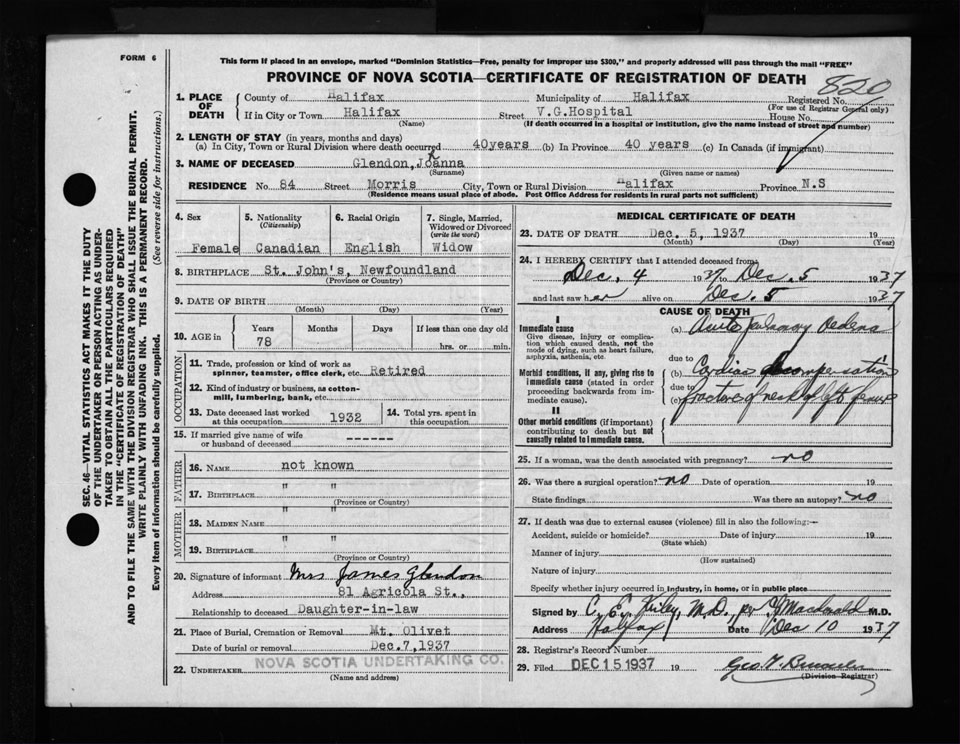 FORM 6
This form if placed in an envelope, marked "Dominion Statistics—Free, penalty for improper use $300," and properly addressed will pass through the mail "FREE"
PROVINCE OF NOVA SCOTIA—CERTIFICATE OF REGISTRATION OF DEATH
820
1. PLACE OF DEATH County of Halifax Municipality of Halifax Registered No.
(For use of Registrar General only)
If in City or Town Halifax Street V.G.Hospital House No.
(Name) (If death occurred in a hospital or institution, give the name instead of street and number)
2. LENGTH OF STAY (in years, months and days)
(a) In City, Town or Rural Division where death occurred 40years (b) In Province 40 years (c) In Canada (if immigrant)
3. NAME OF DECEASED Glendon, Joanna
(Surname) (Given name or names)
RESIDENCE No. 84 Street Morris City, Town or Rural Division Halifax Province N.S
(Residence means usual place of abode. Post Office Address for residents in rural parts not sufficient)
4. Sex 5. Nationality (Citizenship) 6. Racial Origin 7. Single, Married, Widowed or Divorced (write the word)
Female Canadian English Widow
8. BIRTHPLACE St. John's, Newfoundland
(Province or Country)
9. DATE OF BIRTH
(Month) (Day) (Year)
10. AGE in Years Months Days If less than one day old
78 hrs. or min.
OCCUPATION
11. Trade, profession or kind of work as spinner, teamster, office clerk, etc. Retired
12. Kind of industry or business, as cotton-mill, lumbering, bank, etc.
13. Date deceased last worked at this occupation 1932 14. Total yrs. spent in this occupation
15. If married give name of wife or husband of deceased ------
FATHER
16. NAME not known
17. BIRTHPLACE " "
(Province or Country)
MOTHER
18. MAIDEN NAME " "
19. BIRTHPLACE " "
(Province or Country)
20. Signature of informant Mrs James Glendon
Address 81 Agricola St.,
Relationship to deceased Daughter-in-law
21. Place of Burial, Cremation or Removal Mt. Olivet
Date of burial or removal Dec.7,1937
22. UNDERTAKER NOVA SCOTIA UNDERTAKING CO.
(Name and address)
MEDICAL CERTIFICATE OF DEATH
23. DATE OF DEATH Dec. 5, 1937 19
(Month) (Day) (Year)
24. I HEREBY CERTIFY that I attended deceased from
Dec. 4 1937 to Dec. 5 1937
and last saw her alive on Dec. 5 1937
CAUSE OF DEATH
I
Immediate cause
Give disease, injury or complication which caused death, not the mode of dying, such as heart failure, asphyxia, asthenia, etc.
(a) Acute pulmonary Oedema
due to
Morbid conditions, if any, giving rise to immediate cause (stated in order proceeding backwards from immediate cause).
(b) Cardiac decompensation
due to
(c) fracture of neck of left femur
II
Other morbid conditions (if important) contributing to death but not causally related to immediate cause.
25. If a woman, was the death associated with pregnancy? no
26. Was there a surgical operation? no Date of operation 19
State findings Was there an autopsy? no
27. If death was due to external causes (violence) fill in also the following:—
Accident, suicide or homicide? Date of injury 19
(State which)
Manner of injury
(How sustained)
Nature of injury
Specify whether injury occurred in Industry, in home, or in public place
Signed by C. E. M.D. per Macdonald M.D.
Address Halifax Date Dec 10 1937
28. Registrar's Record Number
29. Filed DEC 15 1937 19
(Division Registrar)
SEC. 46—VITAL STATISTICS ACT MAKES IT THE DUTY
OF THE UNDERTAKER OR PERSON ACTING AS UNDER-
TAKER TO OBTAIN ALL THE PARTICULARS REQUIRED
IN THE "CERTIFICATE OF REGISTRATION OF DEATH"
AND TO FILE THE SAME WITH THE DIVISION REGISTRAR WHO SHALL ISSUE THE BURIAL PERMIT.
WRITE PLAINLY WITH UNFADING INK. THIS IS A PERMANENT RECORD.
Every item of information should be carefully supplied. (See reverse side for instructions.)